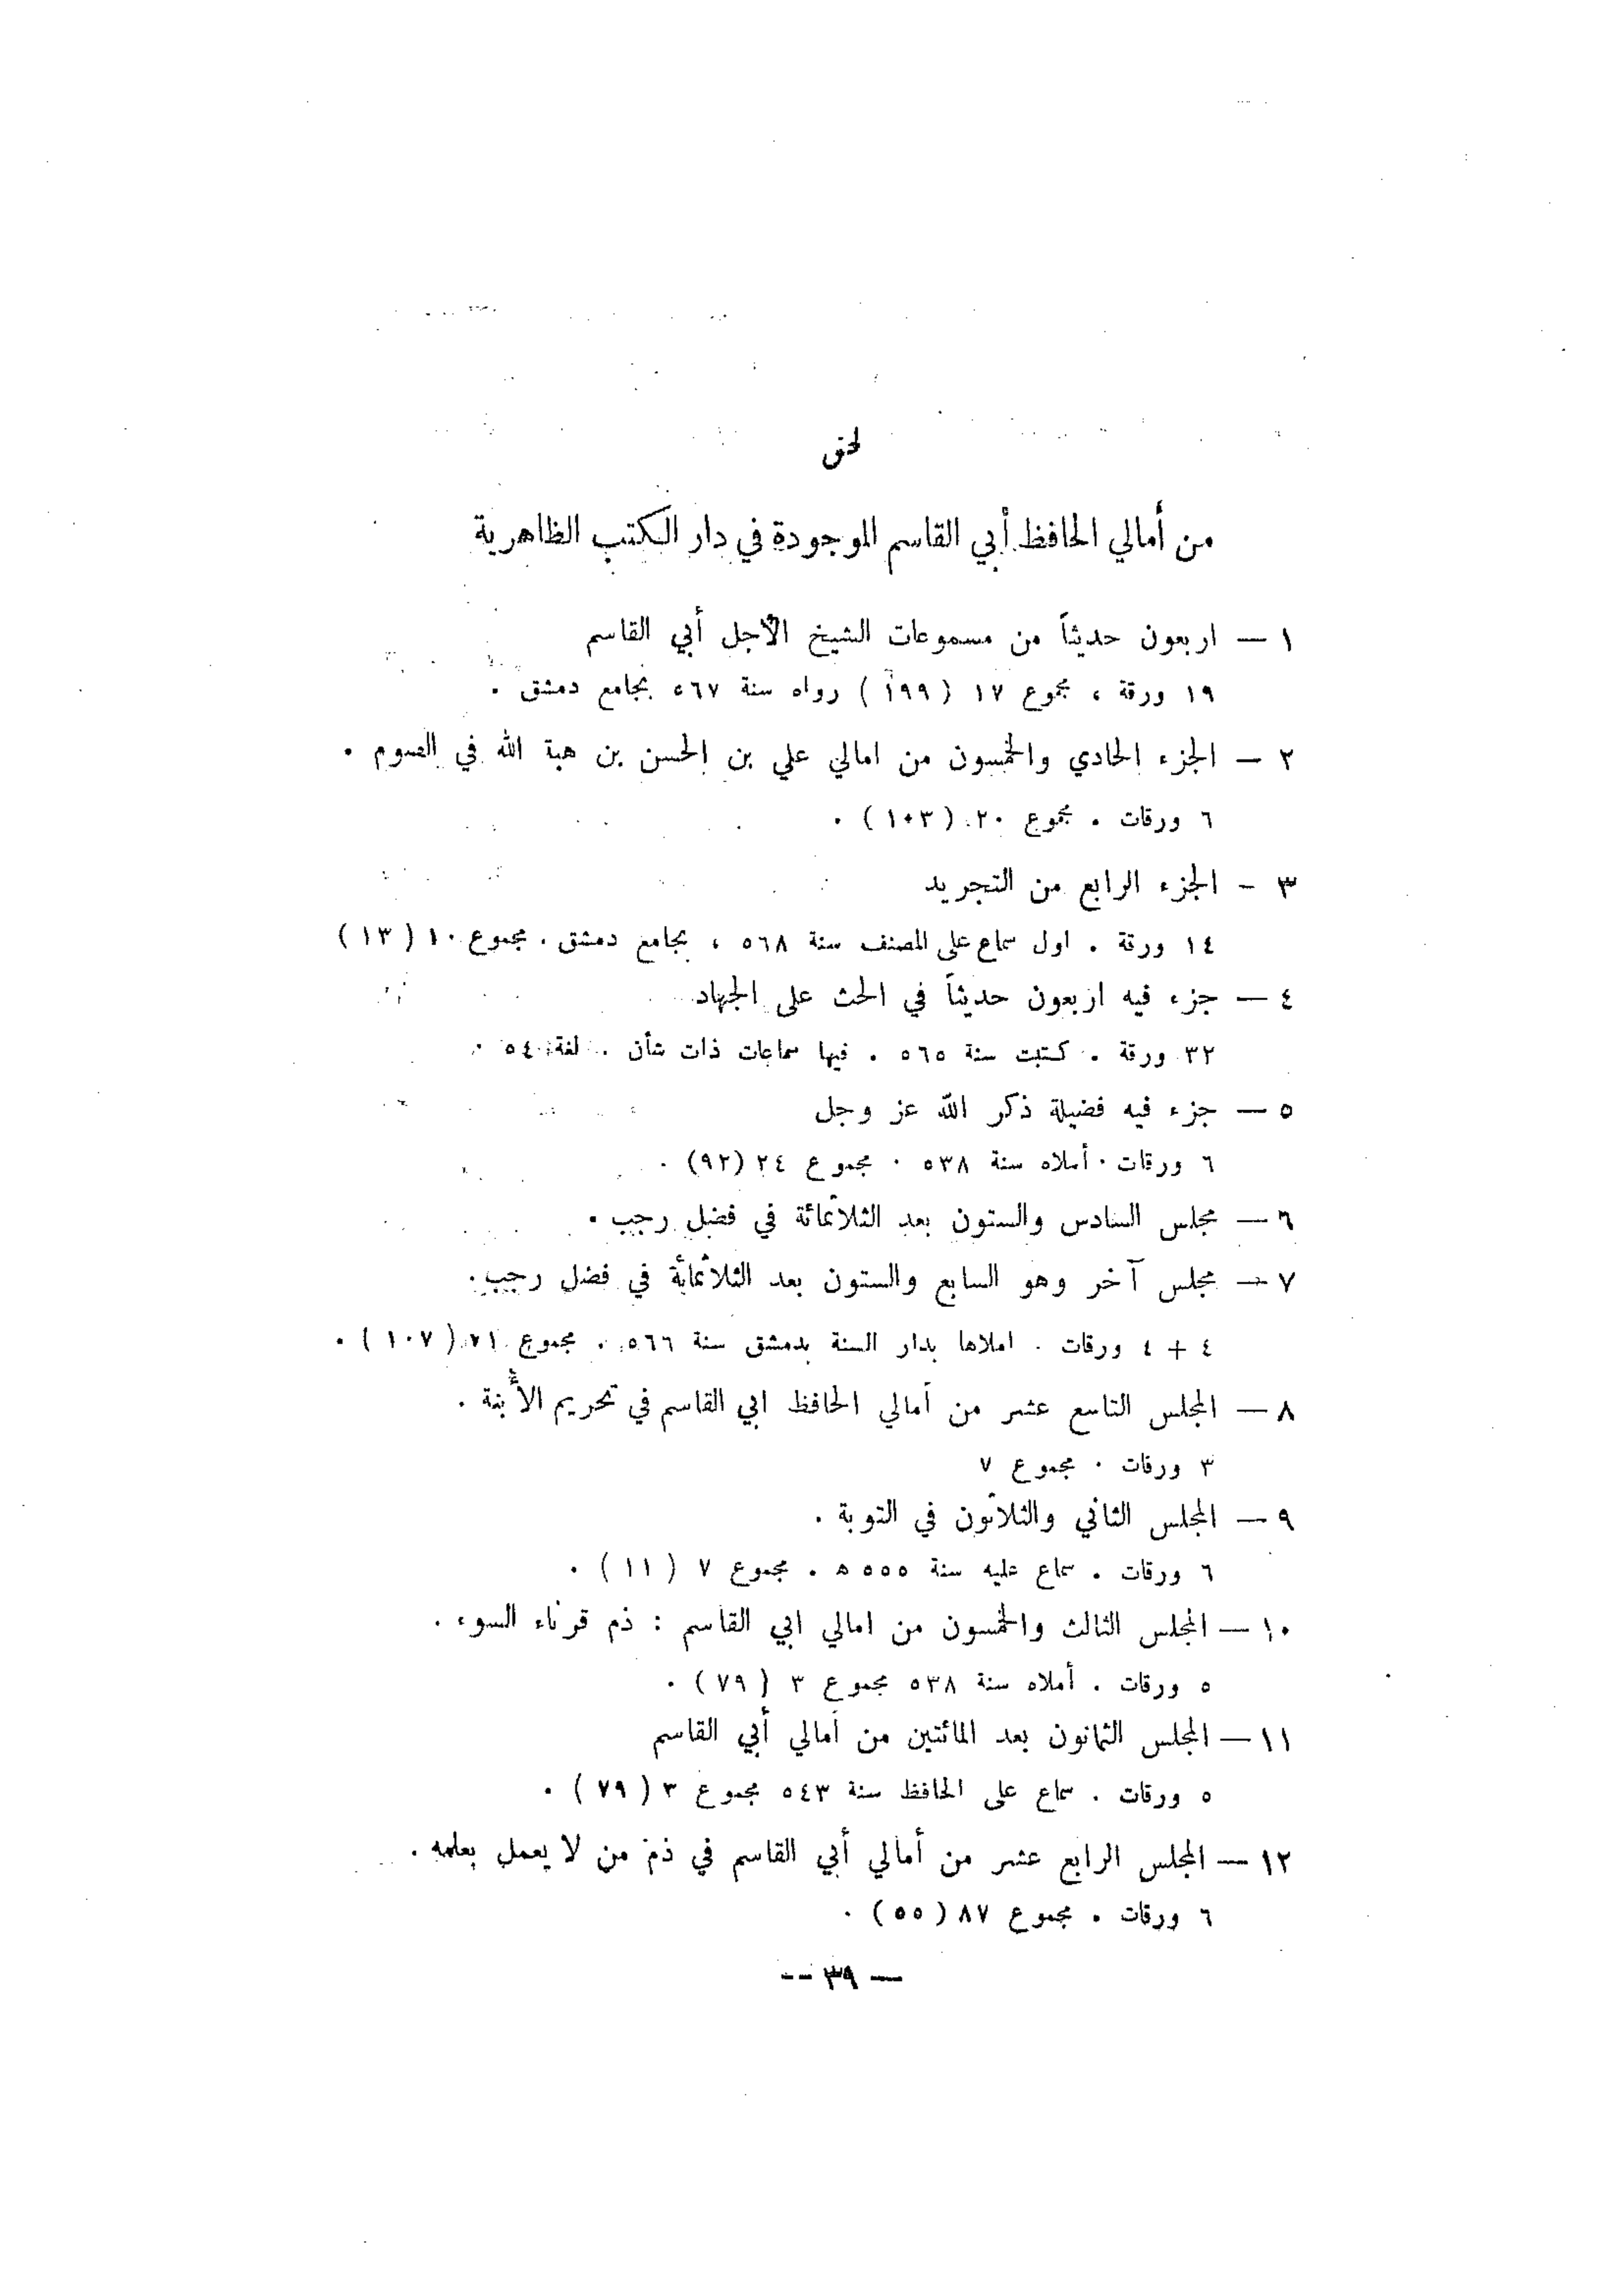 لحق
من أمالي الحافظ أبي القاسم الموجودة في دار الكتب الظاهرية
١ — اربعون حديثاً من مسموعات الشيخ الأجل أبي القاسم
١٩ ورقة ، مجموع ١٧ ( ١٩٩ ) رواه سنة ٥٦٧ بجامع دمشق .
٢ — الجزء الحادي والخمسون من امالي علي بن الحسن بن هبة الله في الصوم .
٦ ورقات . مجموع ٢٠ ( ١٠٣ ) .
٣ — الجزء الرابع من التجريد
١٤ ورقة . اول سماع على المصنف سنة ٥٦٨ ، بجامع دمشق . مجموع ١٠ ( ١٣ )
٤ — جزء فيه اربعون حديثاً في الحث على الجهاد
٣٢ ورقة . كتبت سنة ٥٦٥ . فيها سماعات ذات شأن . لغة ٥٤ .
٥ — جزء فيه فضيلة ذكر الله عز وجل
٦ ورقات . أملاه سنة ٥٣٨ . مجموع ٢٤ (٩٢) .
٦ — مجلس السادس والستون بعد الثلاثمائة في فضل رجب .
٧ — مجلس آخر وهو السابع والستون بعد الثلاثمائة في فضل رجب .
٤ + ٤ ورقات . املاها بدار السنة بدمشق سنة ٥٦٦ . مجموع ٧١ ( ١٠٧ ) .
٨ — المجلس التاسع عشر من أمالي الحافظ ابي القاسم في تحريم الأُبنة .
٣ ورقات . مجموع ٧
٩ — المجلس الثاني والثلاثون في التوبة .
٦ ورقات . سماع عليه سنة ٥٥٥ ه . مجموع ٧ ( ١١ ) .
١٠ — المجلس الثالث والخمسون من امالي ابي القاسم : ذم قرناء السوء .
٥ ورقات . أملاه سنة ٥٣٨ مجموع ٣ ( ٧٩ ) .
١١ — المجلس الثمانون بعد المائتين من أمالي أبي القاسم
٥ ورقات . سماع على الحافظ سنة ٥٤٣ مجموع ٣ ( ٧٩ ) .
١٢ — المجلس الرابع عشر من أمالي أبي القاسم في ذم من لا يعمل بعلمه .
٦ ورقات . مجموع ٨٧ ( ٥٥ ) .
— ٣٩ —